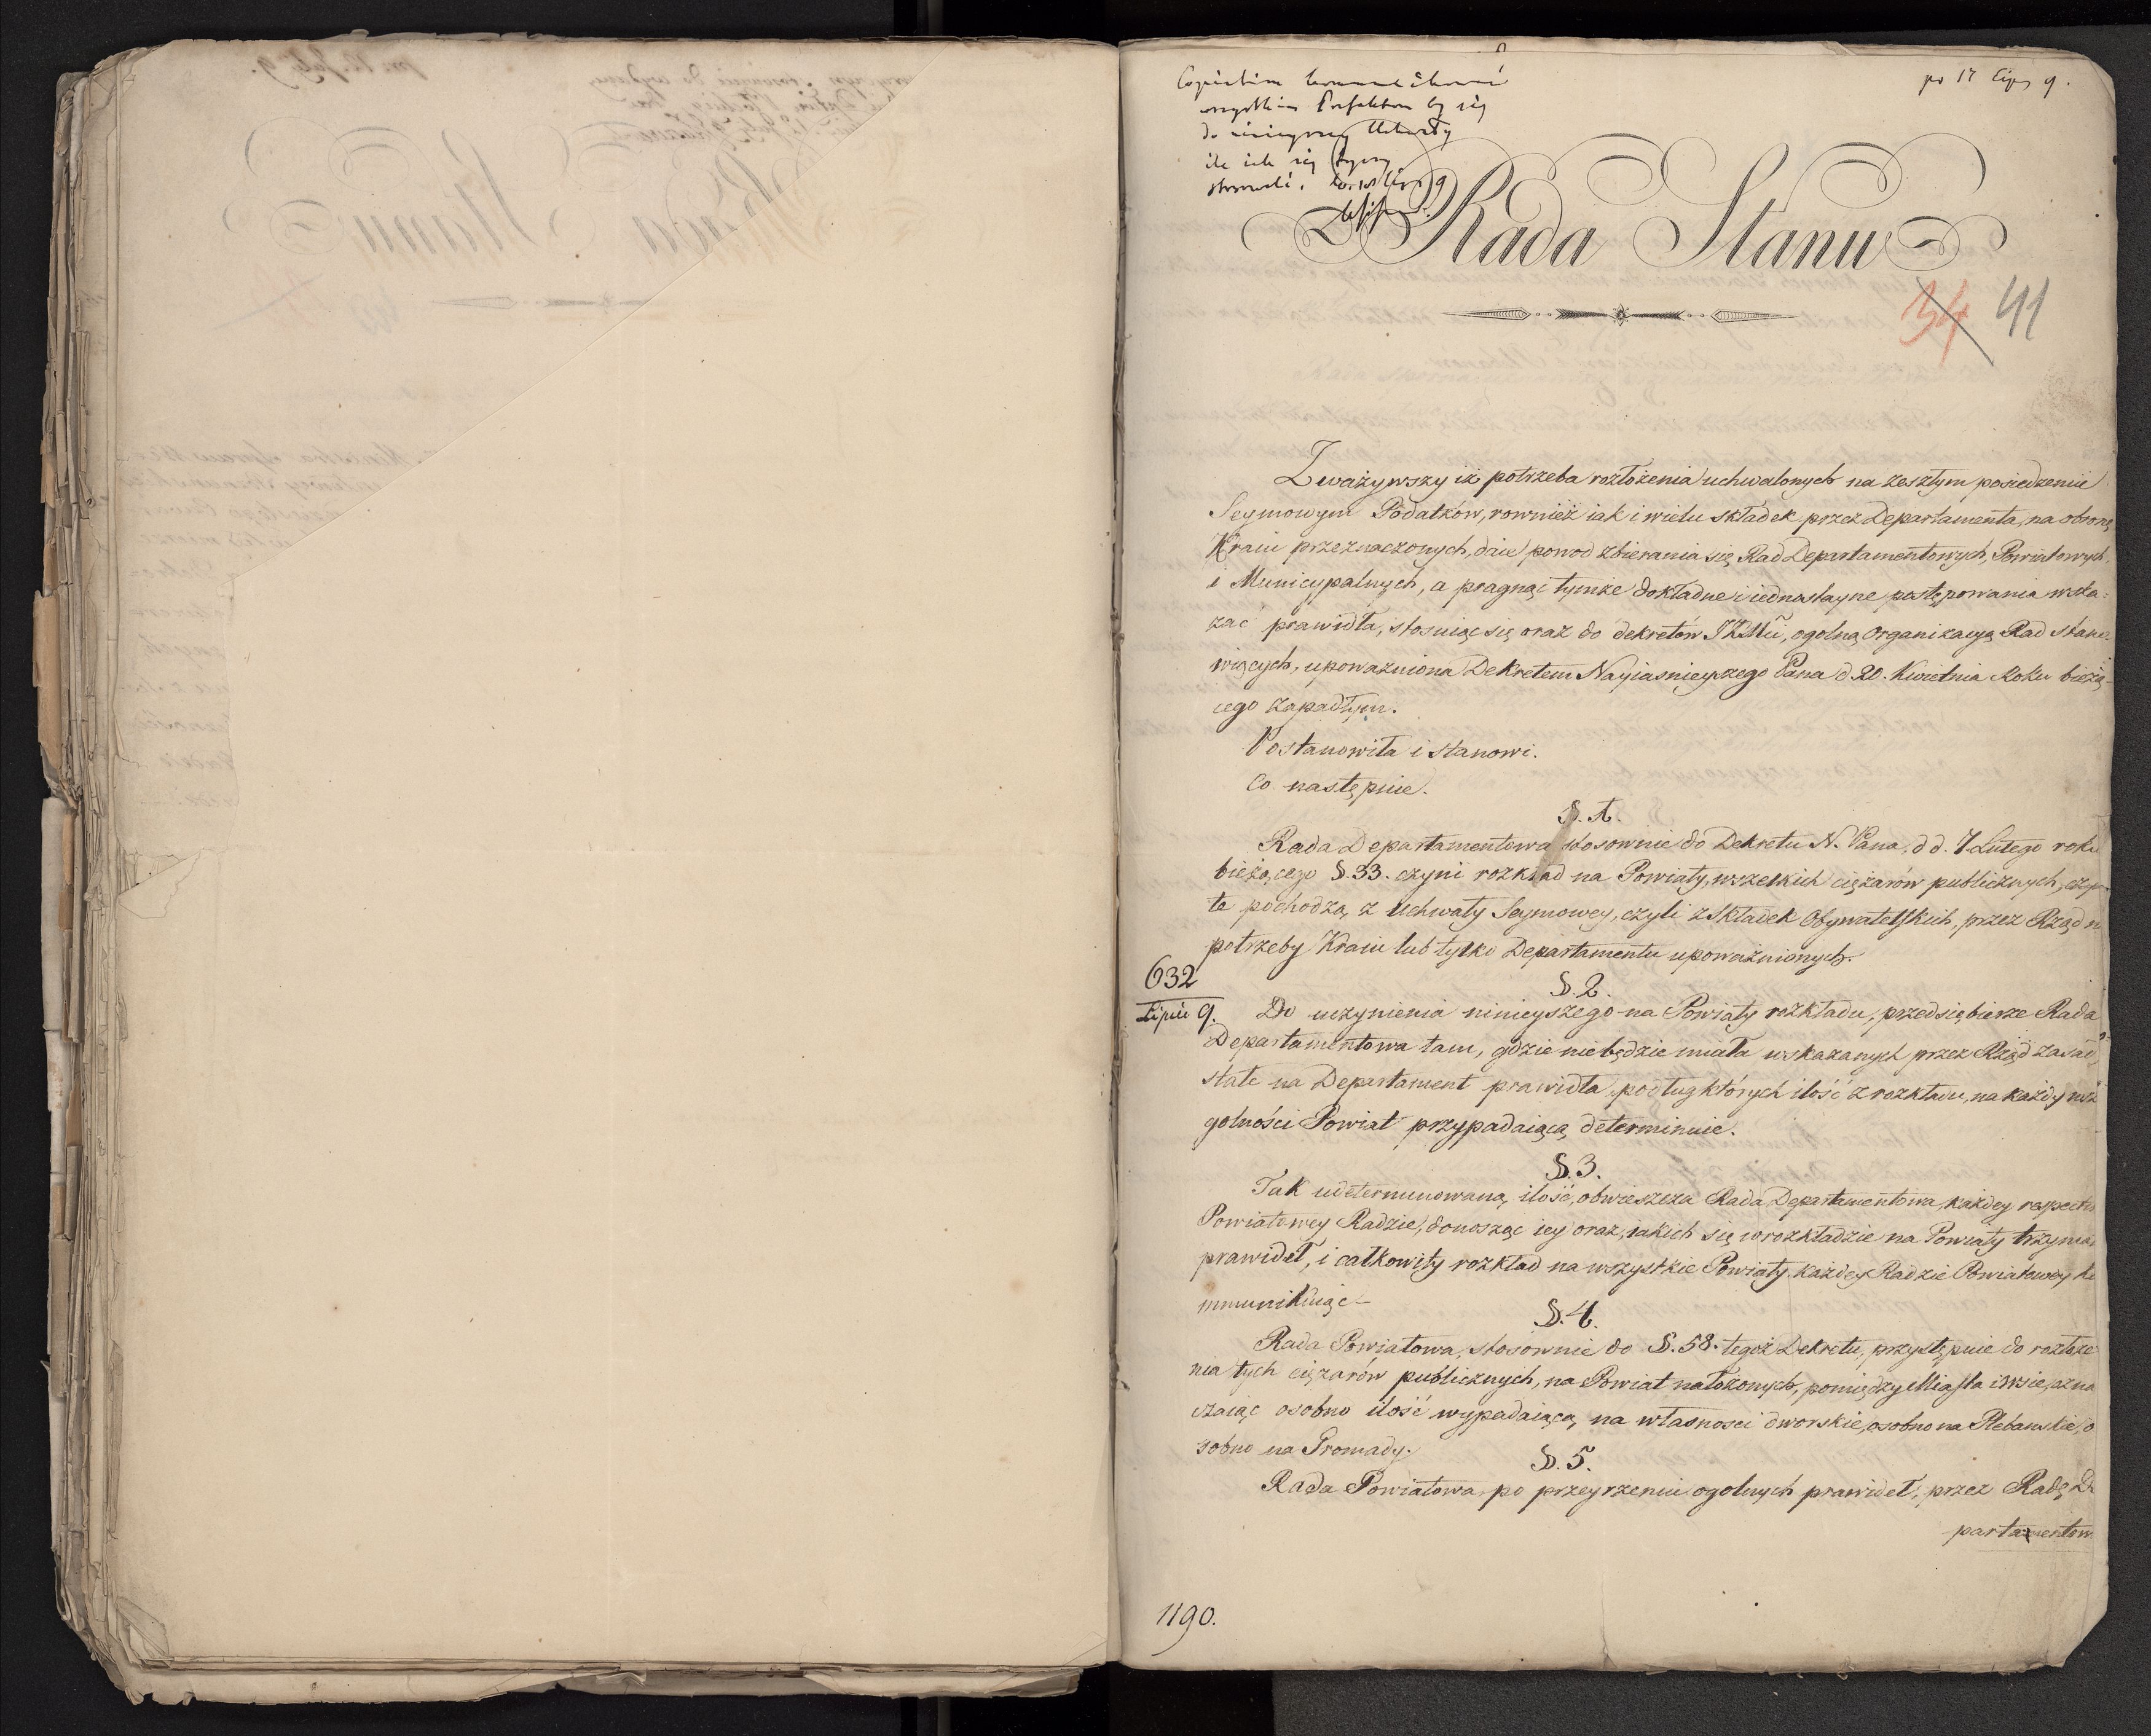 po 17 Lipca 9.
wszystkim Prefektom by się
do Uchwały
ile ich się tyczy
stosowali.
Rada Stanu
34 41
Zważywszy iż potrzeba rozłożenia uchwalonych na zeszłym posiedzeniu
Seymowym Podatków, rownież iak i wielu składek przez Departamenta, na obronę
Kraiu przeznaczonych, daie powod zbierania się Rad Departamentowych, Powiatowych
i Municypalnych, a pragnąc tymże dokładne i iednostayne postępowania wska=
zać prawidła, stosuiąc się oraz do dekretów JKMci, ogolną Organizacyą Rad stano=
wiących, upoważniona Dekretem Nayiasnieyszego Pana d. 20. Kwietnia Roku bieżą=
cego zapadłym.
Postanowiła i stanowi.
Co następuie.
§. 1.
Rada Departamentowa stosownie do Dekretu N. Pana, d d. 7 Lutego roku
bieżącego §. 33. czyni rozkład na Powiaty, wszelkich ciężarów publicznych, czy
te pochodzą z Uchwały Seymowey, czyli z Składek Obywatelskich, przez Rząd na
potrzeby Kraiu lub tylko Departamentu upoważnionych.
632
Lipca 9.
§. 2.
Do uczynienia ninieyszego na Powiaty rozkładu, przedsiębierze Rada
Departamentowa tam, gdzie niebędzie miała wskazanych przez Rząd zasad,
stałe na Departament prawidła, podług których ilość z rozkładu, na każdy wsz
golności Powiat przypadaiącą determinuie.
§. 3.
Tak udeterminowaną ilość, obwieszcza Rada Departamentowa, każdey respective
Powiatowey Radzie, donosząc iey oraz, iakich się w rozkładzie na Powiaty trzymała
prawideł, i całkowity rozkład na wszystkie Powiaty każdey Radzie Powiatowey ko
mmunikuiąc –
§. 4.
Rada Powiatowa, stosownie do §. 58. tegoż Dekretu, przystępuie do rozłoże
nia tych ciężarów publicznych, na Powiat nałożonych, pomiędzy Miasta i wsie, ozna
czaiąc osobno ilość wypadaiącą na własności dworskie, osobno na Plebanskie, o
sobno na Gromady.
§. 5.
Rada Powiatowa, po przeyrzeniu ogolnych prawideł, przez Radę De
partamentow
1190.